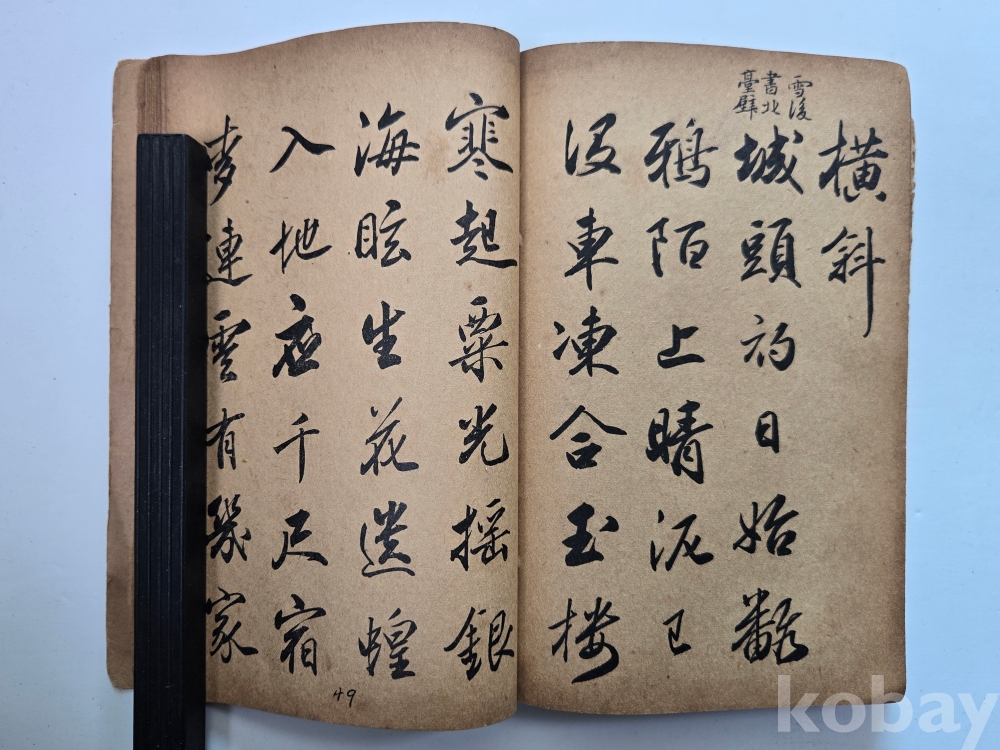 橫斜
雪後
書北
臺壁
城頭初日始翻
鴉陌上晴泥已
沒車凍合玉樓
寒起粟光搖銀
海眩生花遺蝗
入地應千尺宿
麥連雲有幾家
49
kobay